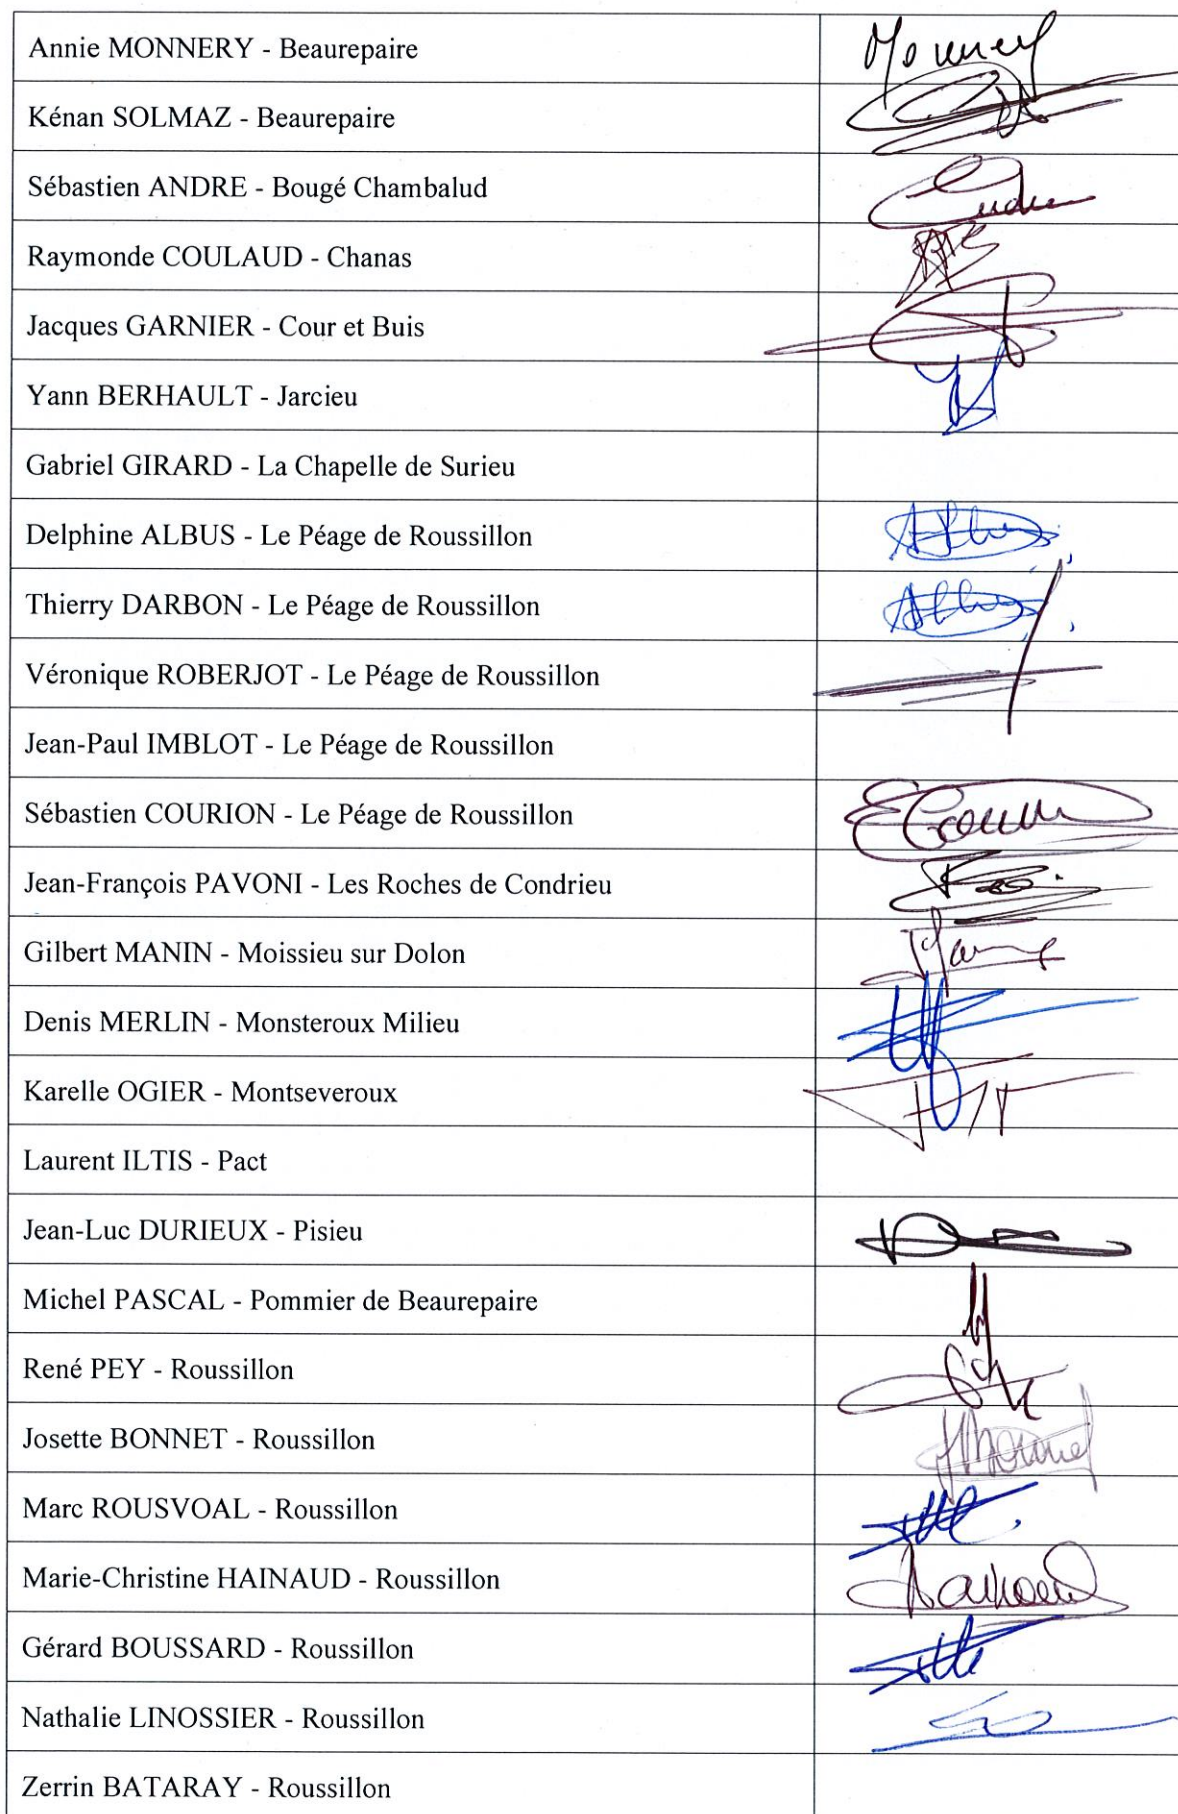 Annie MONNERY - Beaurepaire
Monnery
Kénan SOLMAZ - Beaurepaire
Sébastien ANDRE - Bougé Chambalud
Raymonde COULAUD - Chanas
Jacques GARNIER - Cour et Buis
Yann BERHAULT - Jarcieu
Gabriel GIRARD - La Chapelle de Surieu
Delphine ALBUS - Le Péage de Roussillon
Thierry DARBON - Le Péage de Roussillon
Véronique ROBERJOT - Le Péage de Roussillon
Jean-Paul IMBLOT - Le Péage de Roussillon
Sébastien COURION - Le Péage de Roussillon
Jean-François PAVONI - Les Roches de Condrieu
Gilbert MANIN - Moissieu sur Dolon
Denis MERLIN - Monsteroux Milieu
Karelle OGIER - Montseveroux
Laurent ILTIS - Pact
Jean-Luc DURIEUX - Pisieu
Michel PASCAL - Pommier de Beaurepaire
René PEY - Roussillon
Josette BONNET - Roussillon
Marc ROUSVOAL - Roussillon
Marie-Christine HAINAUD - Roussillon
Gérard BOUSSARD - Roussillon
Nathalie LINOSSIER - Roussillon
Zerrin BATARAY - Roussillon